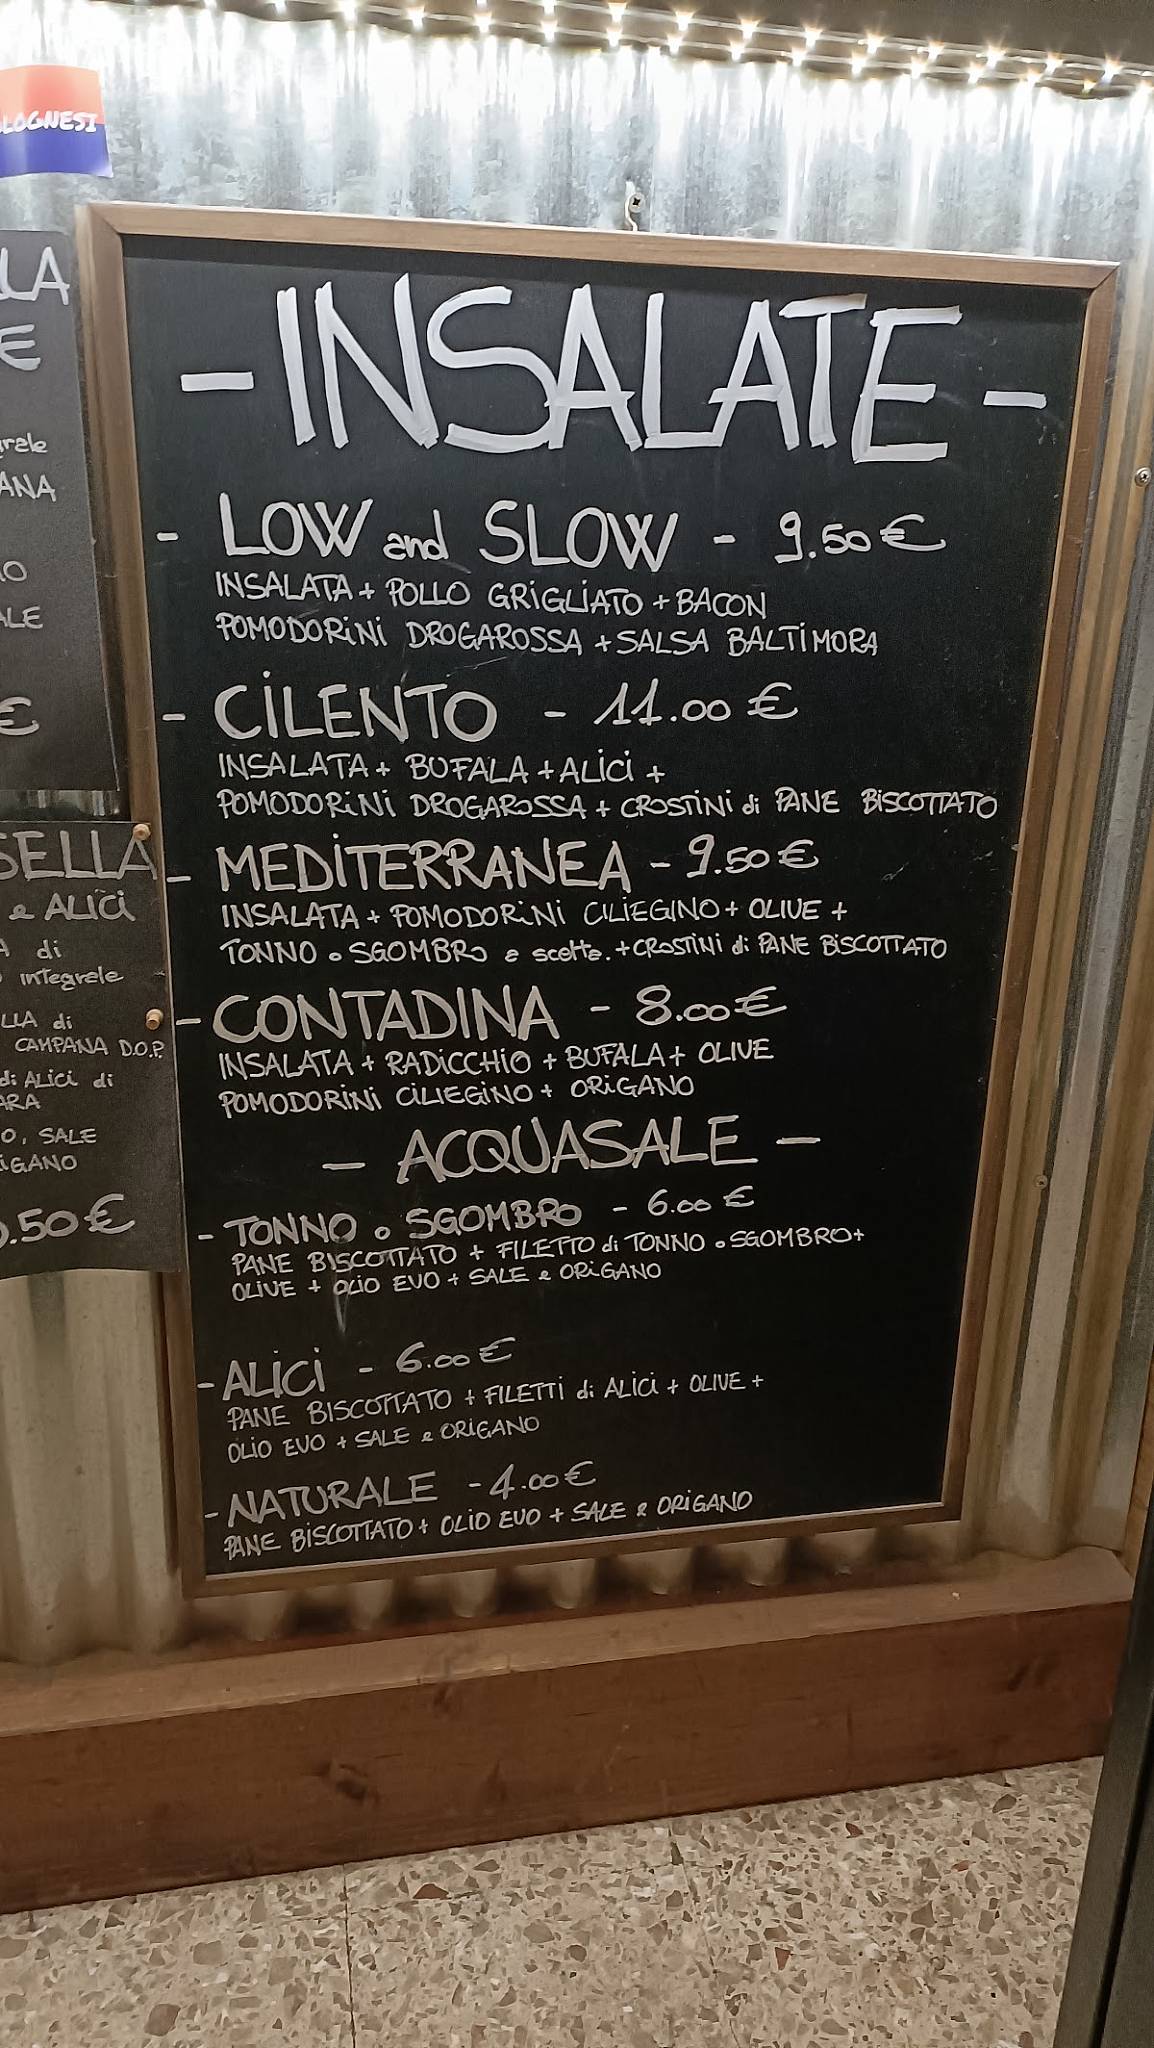 LOGNESI
LLA
E
grale
ANA
IO
ALE
€
SELLA
e ALICI
A di
integrale
LLA di
CAMPANA D.O.P.
di ALICI di
ARA
O, SALE
IGANO
.50 €
- INSALATE -
- LOW and SLOW - 9.50 €
INSALATA + POLLO GRIGLIATO + BACON
POMODORINI DROGAROSSA + SALSA BALTIMORA
- CILENTO - 11.00 €
INSALATA + BUFALA + ALICI +
POMODORINI DROGAROSSA + CROSTINI di PANE BISCOTTATO
- MEDITERRANEA - 9.50 €
INSALATA + POMODORINI CILIEGINO + OLIVE +
TONNO o SGOMBRO a scelta. + CROSTINI di PANE BISCOTTATO
- CONTADINA - 8.00 €
INSALATA + RADICCHIO + BUFALA + OLIVE
POMODORINI CILIEGINO + ORIGANO
- ACQUASALE -
- TONNO o SGOMBRO - 6.00 €
PANE BISCOTTATO + FILETTO di TONNO o SGOMBRO +
OLIVE + OLIO EVO + SALE e ORIGANO
- ALICI - 6.00 €
PANE BISCOTTATO + FILETTI di ALICI + OLIVE +
OLIO EVO + SALE e ORIGANO
- NATURALE - 4.00 €
PANE BISCOTTATO + OLIO EVO + SALE e ORIGANO